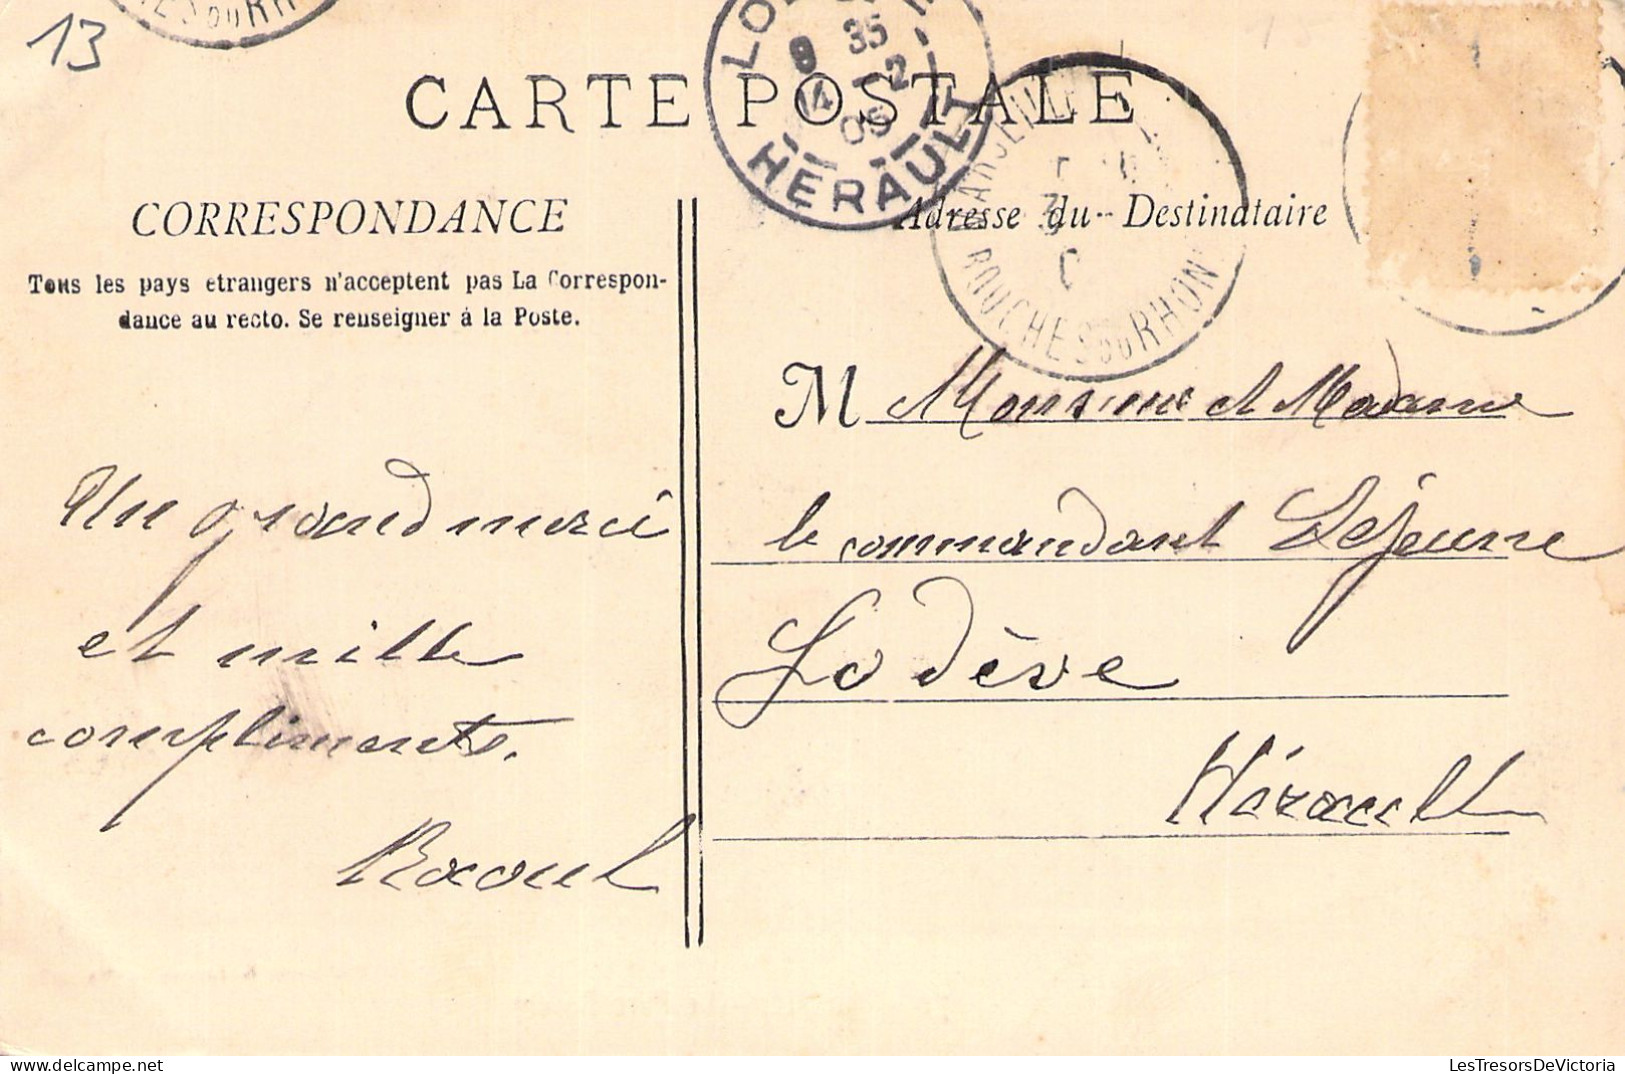 13
CARTE POSTALE
LOD
9 35
14 - 2
05
HERAULT
MARSEILLE
BOUCHES DU RHONE
CORRESPONDANCE
Adresse du Destinataire
Tous les pays etrangers n'acceptent pas La Correspon-
dance au recto. Se renseigner à la Poste.
M Monsieur et Madame
le commandant Lejeune
Lodève
Hérault
Un grand merci
et mille
compliments.
Raoul
LesTresorsDeVictoria
www.delcampe.net